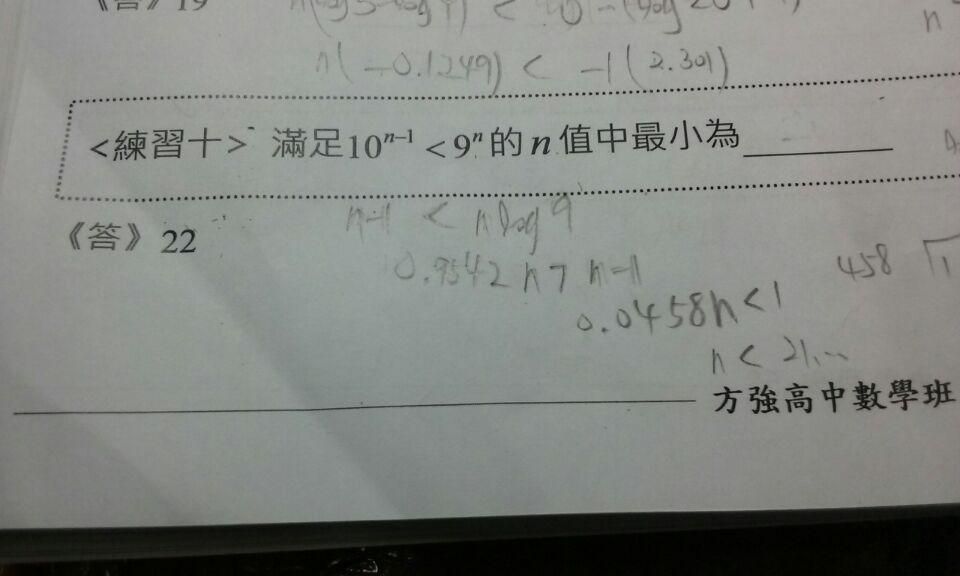 《答》19
n(-0.1249) < -1(2.301)
<練習十> 滿足10ⁿ⁻¹ < 9ⁿ 的 n 值中最小為
《答》22
n-1 < n log 9
0.9542 n > n-1
0.0458n < 1
458
n < 21...
方強高中數學班